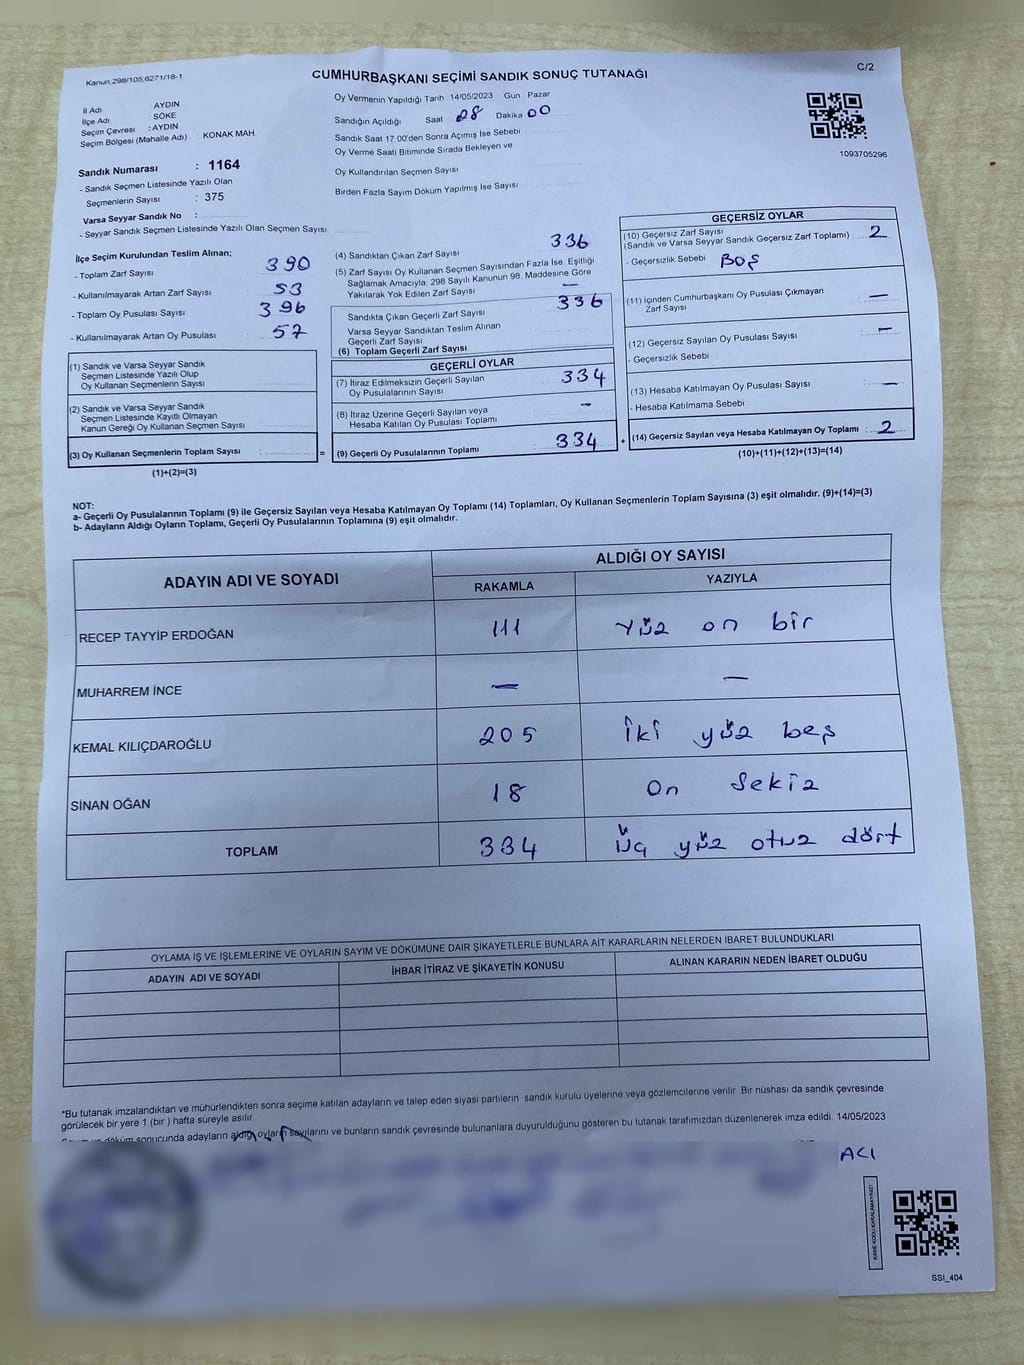 Kanun:298/105,6271/18-1
CUMHURBAŞKANI SEÇİMİ SANDIK SONUÇ TUTANAĞI
C/2
İl Adı : AYDIN
İlçe Adı : SÖKE
Seçim Çevresi : AYDIN
Seçim Bölgesi (Mahalle Adı) : KONAK MAH.
Sandık Numarası : 1164
- Sandık Seçmen Listesinde Yazılı Olan
Seçmenlerin Sayısı : 375
Varsa Seyyar Sandık No :
- Seyyar Sandık Seçmen Listesinde Yazılı Olan Seçmen Sayısı
Oy Vermenin Yapıldığı Tarih 14/05/2023 Gün Pazar
Sandığın Açıldığı Saat 08 Dakika 00
Sandık Saat 17:00'den Sonra Açımış İse Sebebi
Oy Verme Saati Bitiminde Sırada Bekleyen ve
Oy Kullandırılan Seçmen Sayısı
Birden Fazla Sayım Döküm Yapılmış İse Sayısı
1093705296
İlçe Seçim Kurulundan Teslim Alınan;
- Toplam Zarf Sayısı 390
- Kullanılmayarak Artan Zarf Sayısı 53
- Toplam Oy Pusulası Sayısı 396
- Kullanılmayarak Artan Oy Pusulası 57
(1) Sandık ve Varsa Seyyar Sandık
Seçmen Listesinde Yazılı Olup
Oy Kullanan Seçmenlerin Sayısı :
(2) Sandık ve Varsa Seyyar Sandık
Seçmen Listesinde Kayıtlı Olmayan
Kanun Gereği Oy Kullanan Seçmen Sayısı :
(3) Oy Kullanan Seçmenlerin Toplam Sayısı : =
(1)+(2)=(3)
(4) Sandıktan Çıkan Zarf Sayısı 336
(5) Zarf Sayısı Oy Kullanan Seçmen Sayısından Fazla İse, Eşitliği
Sağlamak Amacıyla, 298 Sayılı Kanunun 98. Maddesine Göre
Yakılarak Yok Edilen Zarf Sayısı —
Sandıkta Çıkan Geçerli Zarf Sayısı 336
Varsa Seyyar Sandıktan Teslim Alınan
Geçerli Zarf Sayısı
(6) Toplam Geçerli Zarf Sayısı
GEÇERLİ OYLAR
(7) İtiraz Edilmeksizin Geçerli Sayılan
Oy Pusulalarının Sayısı 334
(8) İtiraz Üzerine Geçerli Sayılan veya
Hesaba Katılan Oy Pusulası Toplamı -
(9) Geçerli Oy Pusulalarının Toplamı 334 +
GEÇERSİZ OYLAR
(10) Geçersiz Zarf Sayısı
(Sandık ve Varsa Seyyar Sandık Geçersiz Zarf Toplamı) : 2
- Geçersizlik Sebebi BOŞ
(11) İçinden Cumhurbaşkanı Oy Pusulası Çıkmayan
Zarf Sayısı : —
(12) Geçersiz Sayılan Oy Pusulası Sayısı : —
- Geçersizlik Sebebi
(13) Hesaba Katılmayan Oy Pusulası Sayısı : —
- Hesaba Katılmama Sebebi :
(14) Geçersiz Sayılan veya Hesaba Katılmayan Oy Toplamı : 2
(10)+(11)+(12)+(13)=(14)
NOT:
a- Geçerli Oy Pusulalarının Toplamı (9) ile Geçersiz Sayılan veya Hesaba Katılmayan Oy Toplamı (14) Toplamları, Oy Kullanan Seçmenlerin Toplam Sayısına (3) eşit olmalıdır. (9)+(14)=(3)
b- Adayların Aldığı Oyların Toplamı, Geçerli Oy Pusulalarının Toplamına (9) eşit olmalıdır.
ADAYIN ADI VE SOYADI
ALDIĞI OY SAYISI
RAKAMLA YAZIYLA
RECEP TAYYİP ERDOĞAN 111 Yüz on bir
MUHARREM İNCE — —
KEMAL KILIÇDAROĞLU 205 İki yüz beş
SİNAN OĞAN 18 On Sekiz
TOPLAM 334 Üç yüz otuz dört
OYLAMA İŞ VE İŞLEMLERİNE VE OYLARIN SAYIM VE DÖKÜMÜNE DAİR ŞİKAYETLERLE BUNLARA AİT KARARLARIN NELERDEN İBARET BULUNDUKLARI
ADAYIN ADI VE SOYADI İHBAR İTİRAZ VE ŞİKAYETİN KONUSU ALINAN KARARIN NEDEN İBARET OLDUĞU
*Bu tutanak imzalandıktan ve mühürlendikten sonra seçime katılan adayların ve talep eden siyasi partilerin sandık kurulu üyelerine veya gözlemcilerine verilir. Bir nüshası da sandık çevresinde
görülecek bir yere 1 (bir) hafta süreyle asılır.
Sayım ve döküm sonucunda adayların aldığı oyların sayılarını ve bunların sandık çevresinde bulunanlara duyurulduğunu gösteren bu tutanak tarafımızdan düzenlenerek imza edildi. 14/05/2023
ACI
KARE KODU KARALAMAYINIZ!
SSI_404